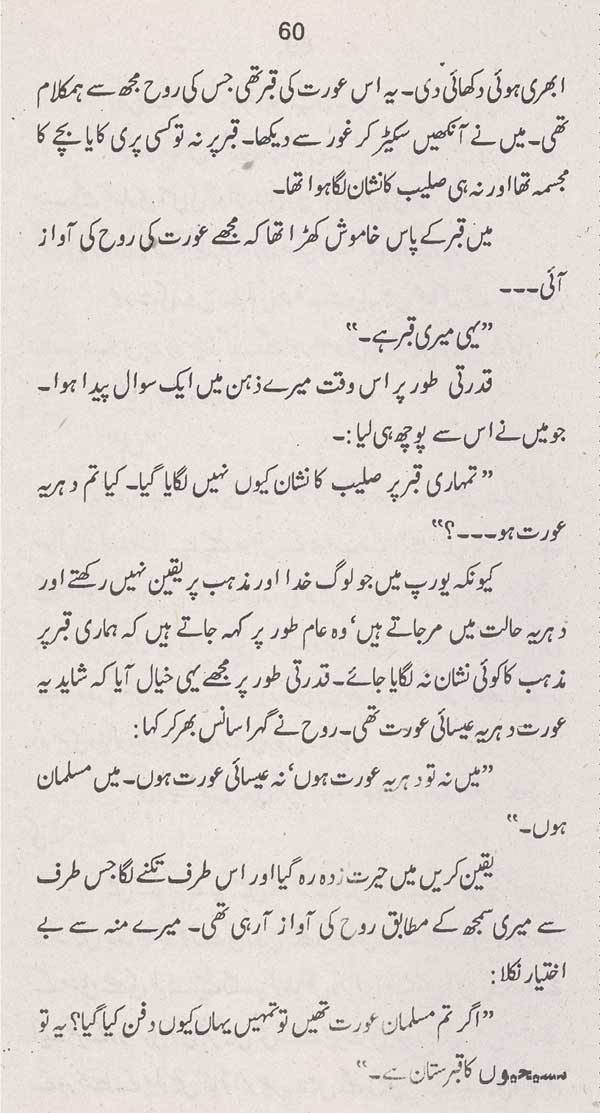 60
ابھری ہوئی دکھائی دی۔ یہ اس عورت کی قبر تھی جس کی روح مجھ سے ہمکلام
تھی۔ میں نے آنکھیں سکیڑ کر غور سے دیکھا۔ قبر پر نہ تو کسی پری کا یا بچے کا
مجسمہ تھا اور نہ ہی صلیب کا نشان لگا ہوا تھا۔
میں قبر کے پاس خاموش کھڑا تھا کہ مجھے عورت کی روح کی آواز
آئی۔۔۔
”یہی میری قبر ہے۔“
قدرتی طور پر اس وقت میرے ذہن میں ایک سوال پیدا ہوا۔
جو میں نے اس سے پوچھ ہی لیا:۔
”تمہاری قبر پر صلیب کا نشان کیوں نہیں لگایا گیا۔ کیا تم دہریہ
عورت ہو۔۔۔؟“
کیونکہ یورپ میں جو لوگ خدا اور مذہب پر یقین نہیں رکھتے اور
دہریہ حالت میں مر جاتے ہیں‘ وہ عام طور پر کہہ جاتے ہیں کہ ہماری قبر پر
مذہب کا کوئی نشان نہ لگایا جائے۔ قدرتی طور پر مجھے یہی خیال آیا کہ شاید یہ
عورت دہریہ عیسائی عورت تھی۔ روح نے گہرا سانس بھر کر کہا:
”میں نہ تو دہریہ عورت ہوں‘ نہ عیسائی عورت ہوں۔ میں مسلمان
ہوں۔“
یقین کریں میں حیرت زدہ رہ گیا اور اس طرف تکنے لگا جس طرف
سے میری سمجھ کے مطابق روح کی آواز آ رہی تھی۔ میرے منہ سے بے
اختیار نکلا:
”اگر تم مسلمان عورت تھیں تو تمہیں یہاں کیوں دفن کیا گیا؟ یہ تو
مسیحیوں کا قبرستان ہے۔“